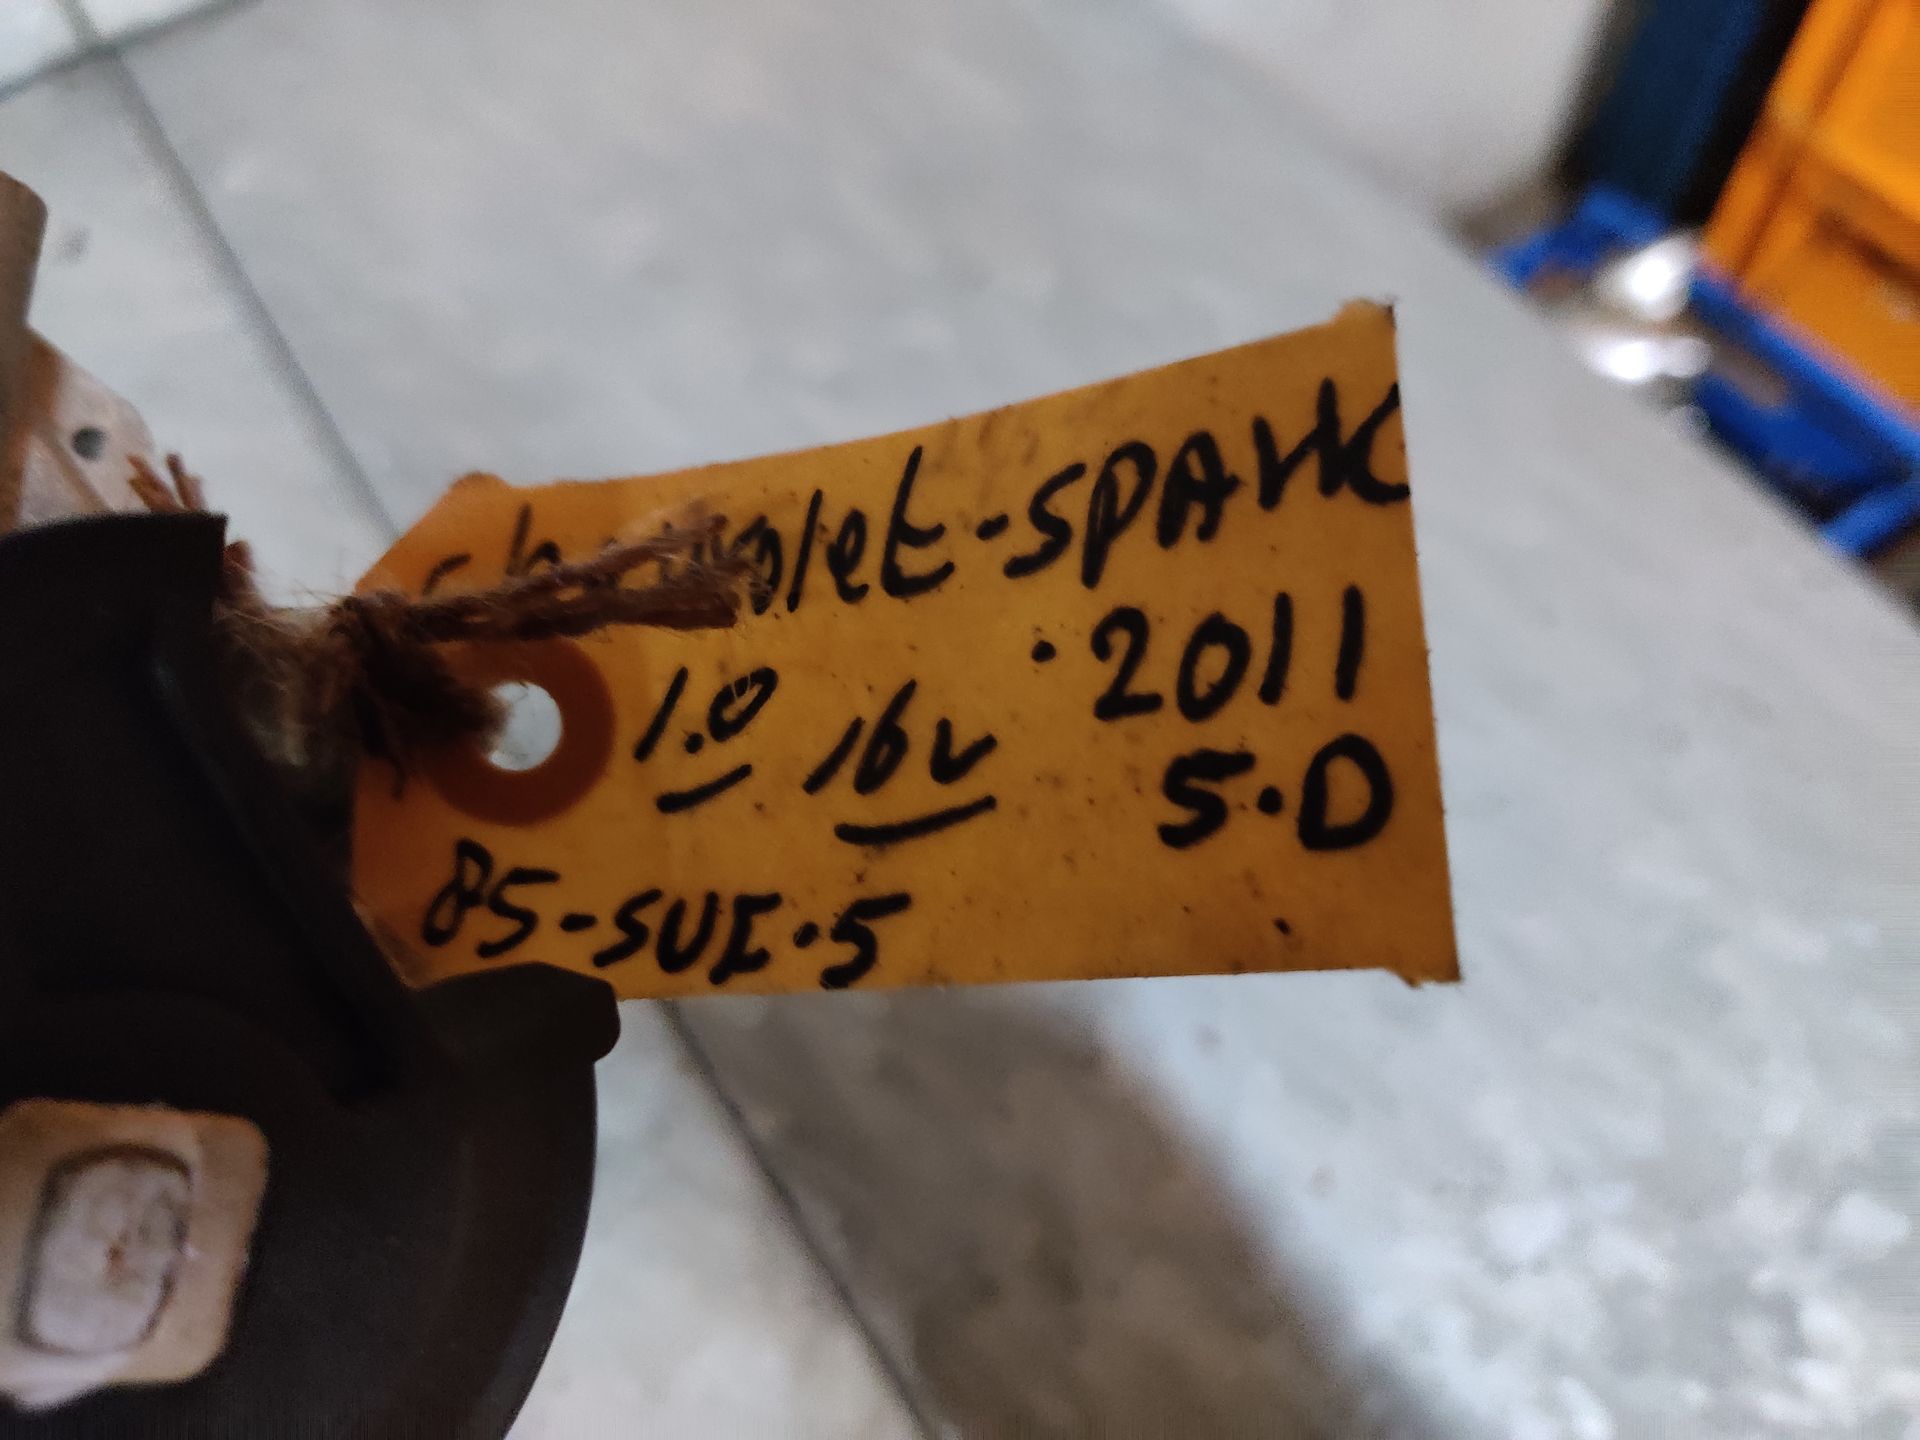 chevrolet-SPARK
1.0 16v · 2011
5·D
85-SUE·5